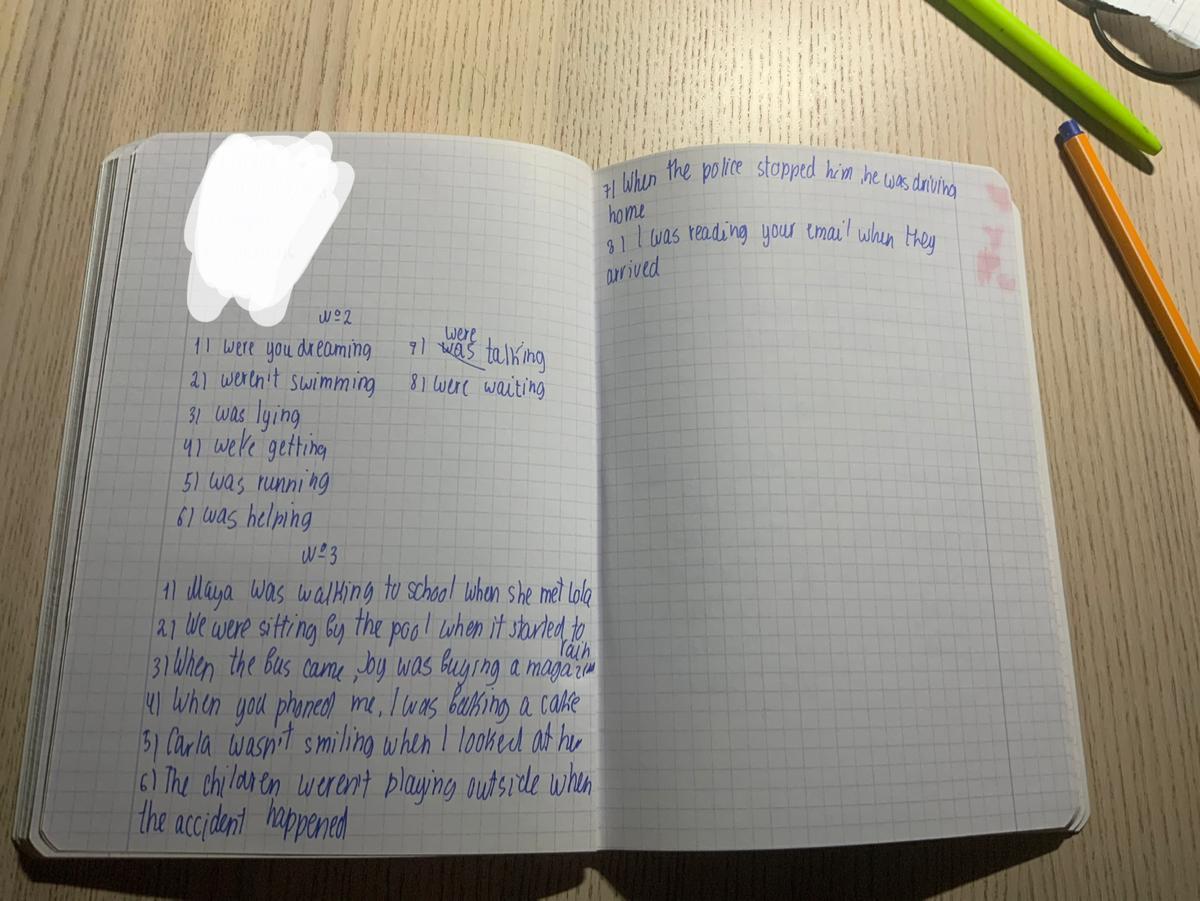 №2
1) were you dreaming
2) weren't swimming
3) was lying
4) were getting
5) was running
6) was helping
7) was were talking
8) were waiting
№3
1) Maya was walking to school when she met Lola
2) We were sitting by the pool when it started to
rain
3) When the bus came, Joy was buying a magazin
4) When you phoned me, I was baking a cake
5) Carla wasn't smiling when I looked at her
6) The children weren't playing outside when
the accident happened
7) When the police stopped him, he was driving
home
8) I was reading your email when they
arrived